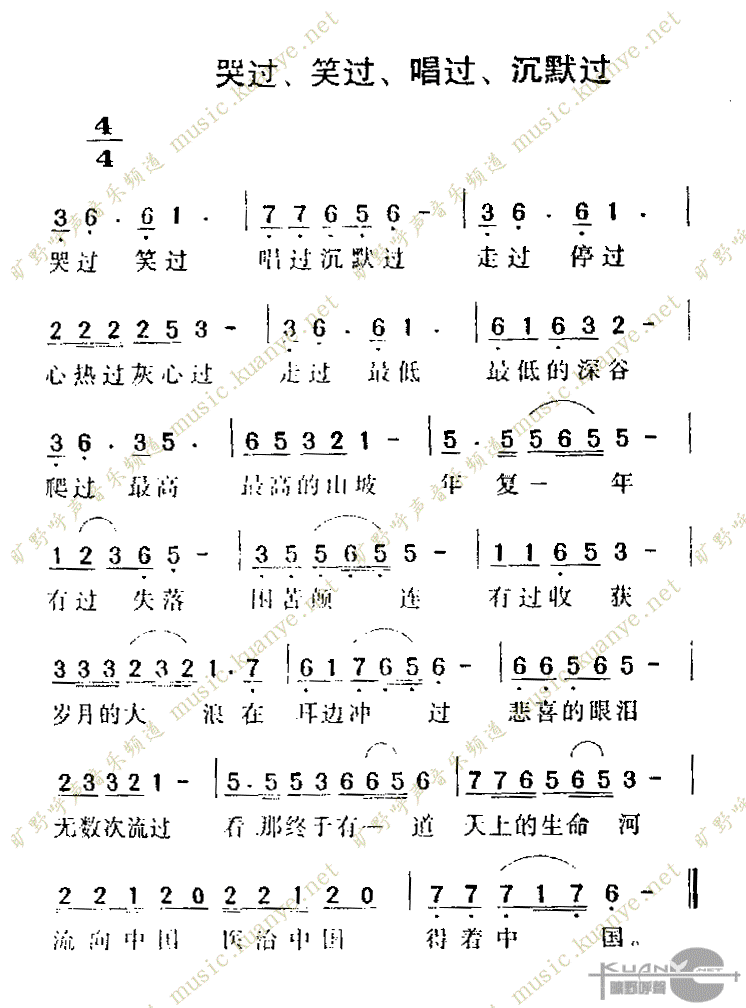 哭过、笑过、唱过、沉默过
4
4
3 6 . 6 1 . | 7 7 6 5 6 - | 3 6 . 6 1 . |
哭过 笑过 唱过沉默过 走过 停过
2 2 2 2 5 3 - | 3 6 . 6 1 . | 6 1 6 3 2 - |
心热过灰心过 走过 最低 最低的深谷
3 6 . 3 5 . | 6 5 3 2 1 - | 5 . 5 5 6 5 5 - |
爬过 最高 最高的山坡 年 复一 年
1 2 3 6 5 - | 3 5 5 6 5 5 - | 1 1 6 5 3 - |
有过 失落 困苦颠 连 有过收获
3 3 3 3 2 3 2 1 . 7 | 6 1 7 6 5 6 - | 6 6 5 6 5 - |
岁月的大 浪在 耳边冲 过 悲喜的眼泪
2 3 3 2 1 - | 5 . 5 5 3 6 6 5 6 | 7 7 6 5 6 5 3 - |
无数次流过 看那终于有一 道 天上的生命 河
2 2 1 2 0 2 2 1 2 0 | 7 7 7 1 7 6 - ‖
流向中国 医治中国 得着中 国。
KUANYE.NET
旷野呼聲
旷野呼声音乐频道 music.kuanye.net